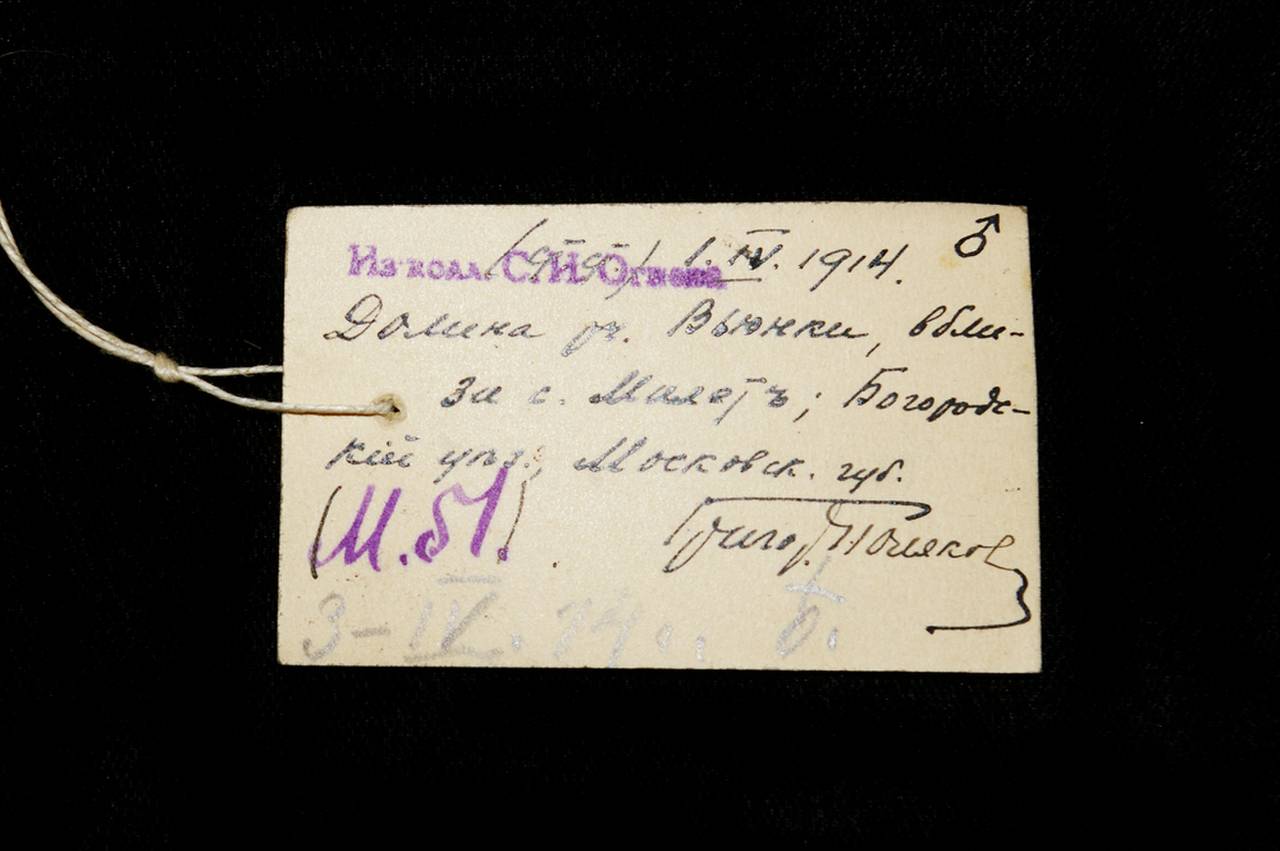 Из колл. С. И. Огнева
1. IV. 1914. ♂
Долина р. Вьюнки, вбли-
за с. Милетъ; Богородс-
кій уѣз., Московск. губ.
(М. Б.)
Григор. Поляков
3-IV. 14 г., Б.